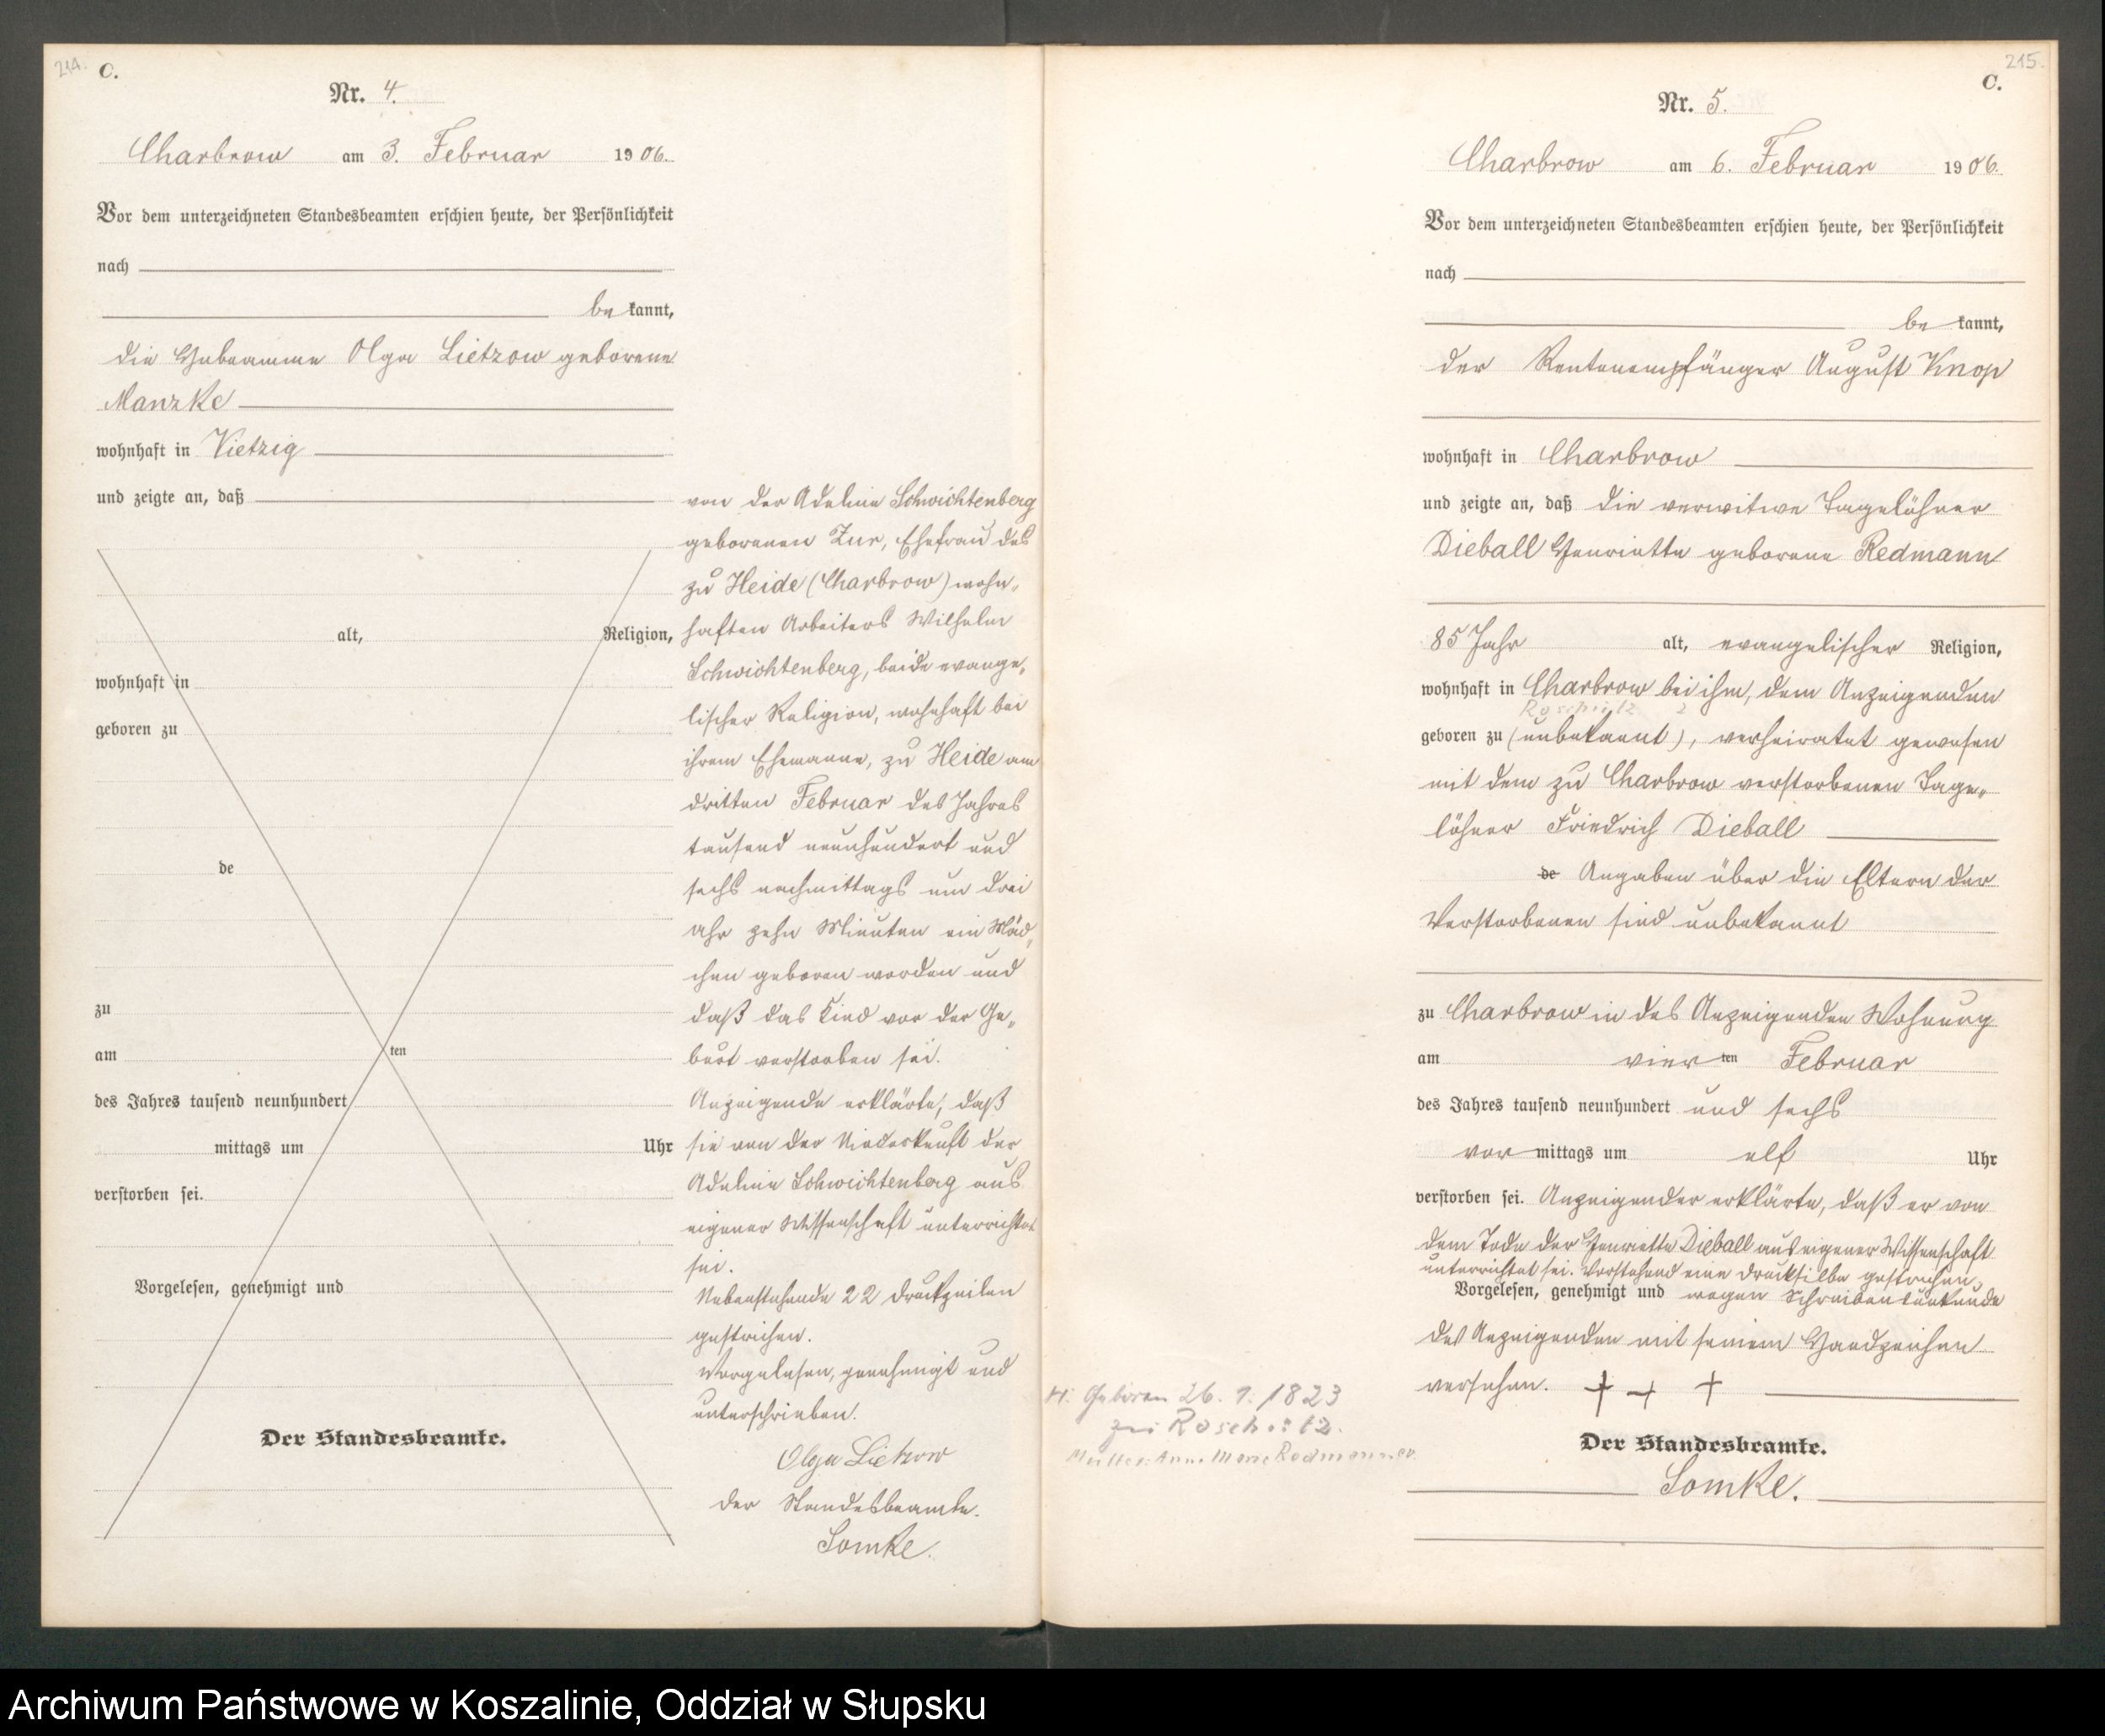 214.
C.
Nr. 4.
Charbrow am 3. Februar 1906.
Vor dem unterzeichneten Standesbeamten erschien heute, der Persönlichkeit
nach
be kannt,
die Hebeamme Olga Lietzow geborene
Manzke
wohnhaft in Vietzig
und zeigte an, daß
alt, Religion,
wohnhaft in
geboren zu
de
zu
am ten
des Jahres tausend neunhundert
mittags um Uhr
verstorben sei.
Vorgelesen, genehmigt und
Der Standesbeamte.
von der Adeline Schwichtenberg
geborenen Zur, Ehefrau des
zu Heide (Charbrow) wohn„
haften Arbeiters Wilhelm
Schwichtenberg, beide evange„
lischer Religion, wohnhaft bei
ihrem Ehemanne, zu Heide am
dritten Februar des Jahres
tausend neunhundert und
sechs nachmittags um drei
Uhr zehn Minuten ein Mäd„
chen geboren worden und
daß das Kind vor der Ge„
burt verstorben sei.
Anzeigende erklärte, daß
sie von der Niederkunft der
Adeline Schwichtenberg aus
eigener Wissenschaft unterrichtet
sei.
Nebenstehende 22 Druckzeilen
gestrichen.
Vorgelesen, genehmigt und
unterschrieben.
Olga Lietzow
Der Standesbeamte.
Lomke.
215.
C.
Nr. 5.
Charbrow am 6. Februar 1906.
Vor dem unterzeichneten Standesbeamten erschien heute, der Persönlichkeit
nach
be kannt,
der Rentenempfänger August Knop
wohnhaft in Charbrow
und zeigte an, daß die verwitwe Tagelöhner
Dieball Henriette geborene Redmann
85 Jahr alt, evangelischer Religion,
wohnhaft in Charbrow bei ihm, dem Anzeigenden
geboren zu (unbekannt), verheiratet gewesen
mit dem zu Charbrow verstorbenen Tage„
löhner Friedrich Dieball
de Angaben über die Eltern der
Verstorbenen sind unbekannt
zu Charbrow in des Anzeigenden Wohnung
am vier ten Februar
des Jahres tausend neunhundert und sechs
vor mittags um elf Uhr
verstorben sei. Anzeigender erklärte, daß er von
dem Tode der Henriette Dieball aus eigener Wissenschaft
unterrichtet sei. Vorstehend eine Drucksilbe gestrichen.
Vorgelesen, genehmigt und wegen Schreibenunkunde
des Anzeigenden mit seinem Handzeichen
versehen. + + +
Der Standesbeamte.
Lomke.
H. Geboren 26. 1. 1823
zu Roschütz.
Mutter: Anne Marie Redmann ev.
Archiwum Państwowe w Koszalinie, Oddział w Słupsku